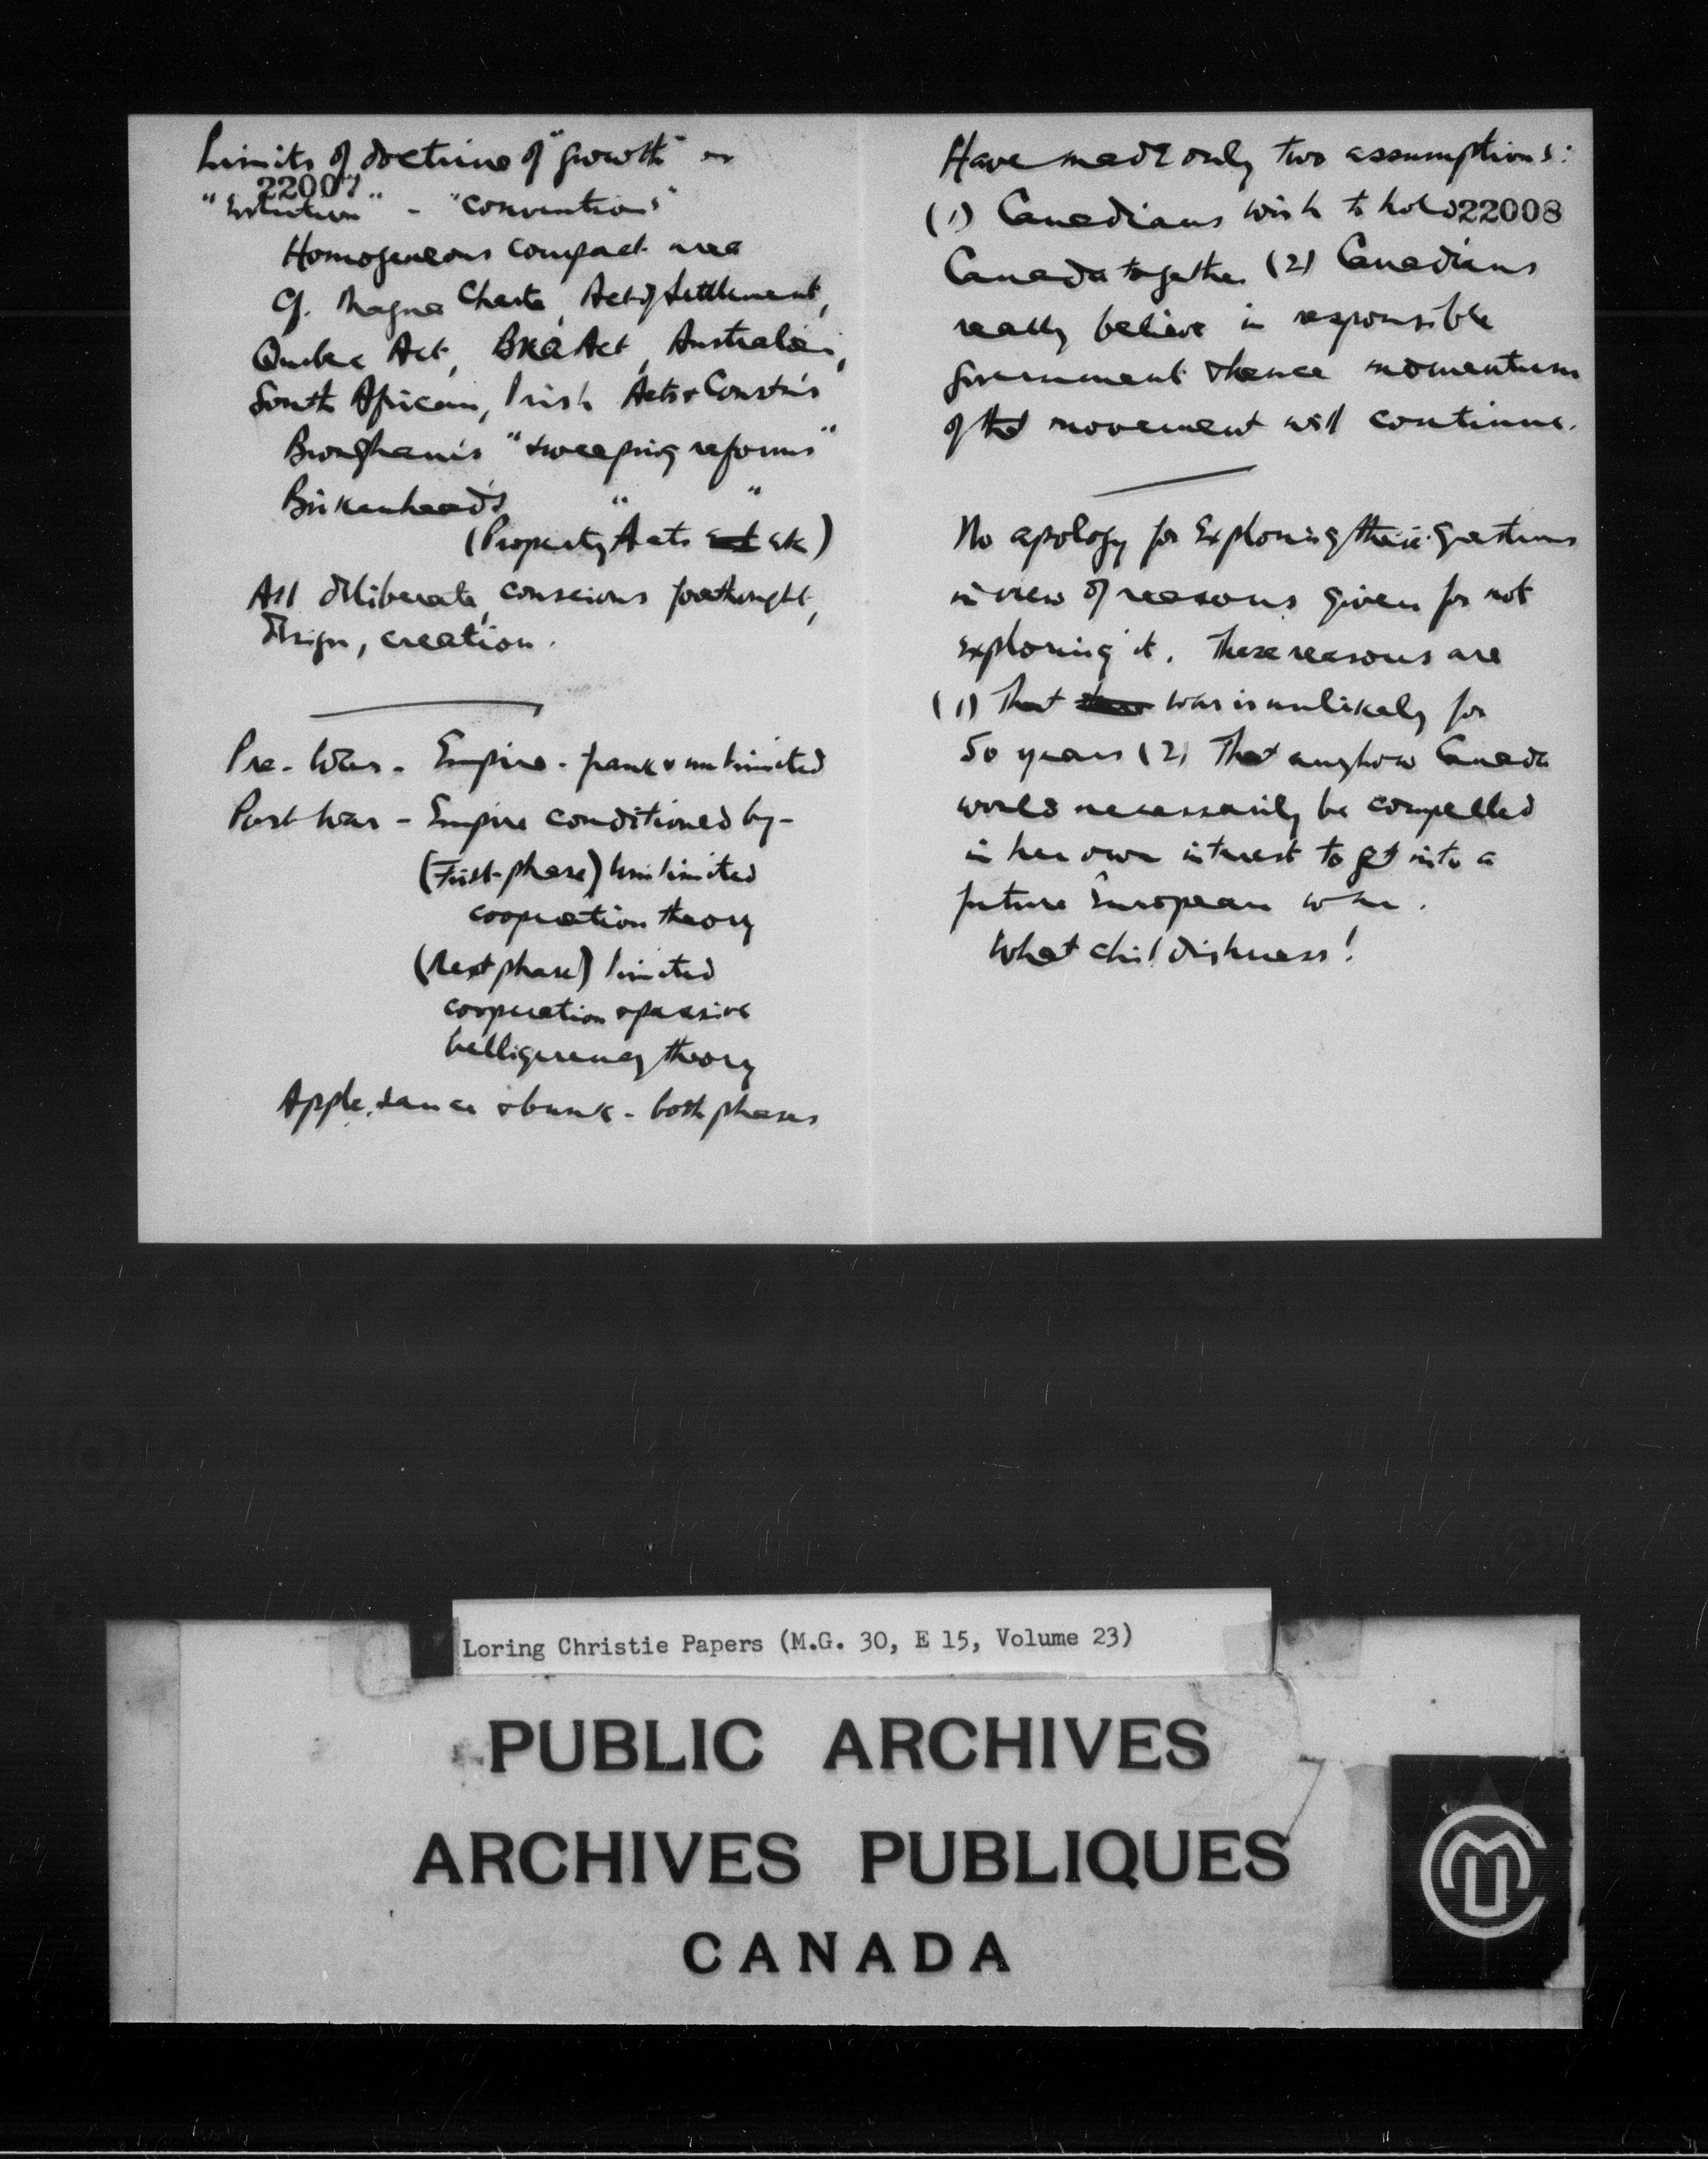 Limits of doctrine of "growth" or
22007
"Evolution" - "conventions"
Homogeneous compact area
Cf. Magna Charta, Act of Settlement,
Quebec Act, BNA Act, Australian,
South African, Irish Acts & Const'ns
Brougham's "sweeping reforms"
Birkenhead's " "
(Property Acts etc)
All deliberate, conscious forethought,
design, creation.
Pre-War - Empire - frank & unlimited
Post War - Empire conditioned by -
(First phase) Unlimited
cooperation theory
(Next phase) limited
cooperation & passive
belligerency theory
Apple sauce & bunk - both phases
Have made only two assumptions:
(1) Canadians wish to hold 22008
Canada together (2) Canadians
really believe in responsible
government & hence momentum
of the movement will continue.
No apology for exploring these questions
in view of reasons given for not
exploring it. These reasons are
(1) That war is unlikely for
50 years (2) That anyhow Canada
would necessarily be compelled
in her own interest to get into a
future European war.
What childishness!
Loring Christie Papers (M.G. 30, E 15, Volume 23)
PUBLIC ARCHIVES
ARCHIVES PUBLIQUES
CANADA